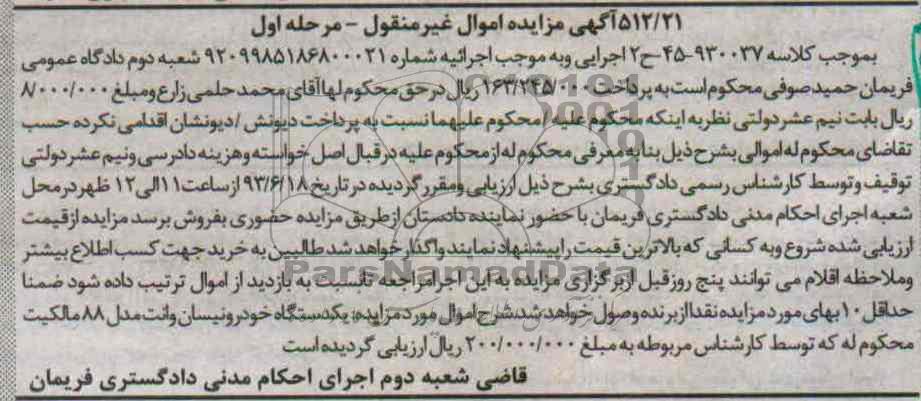 ۵۱۲/۲۱آگهی مزایده اموال غیرمنقول - مرحله اول
بموجب کلاسه ۹۳۰۰۳۷-۴۵-ح۲ اجرایی وبه موجب اجرائیه شماره ۹۲۰۹۹۸۵۱۸۶۸۰۰۰۲۱ شعبه دوم دادگاه عمومی
فریمان حمید صوفی محکوم است به پرداخت ۱۶۳/۲۴۵/۰۰۰ ریال در حق محکوم لها آقای محمد حلمی زارع ومبلغ ۸/۰۰۰/۰۰۰
ریال بابت نیم عشر دولتی نظر به اینکه محکوم علیه / محکوم علیهما نسبت به پرداخت دیونش / دیونشان اقدامی نکرده حسب
تقاضای محکوم له اموالی بشرح ذیل بنا به معرفی محکوم له از محکوم علیه در قبال اصل خواسته وهزینه دادرسی ونیم عشر دولتی
توقیف وتوسط کارشناس رسمی دادگستری بشرح ذیل ارزیابی ومقرر گردیده در تاریخ ۹۳/۶/۱۸ از ساعت ۱۱الی ۱۲ ظهر در محل
شعبه اجرای احکام مدنی دادگستری فریمان با حضور نماینده دادستان ازطریق مزایده حضوری بفروش برسد مزایده ازقیمت
ارزیابی شده شروع وبه کسانی که بالاترین قیمت را پیشنهاد نمایند واگذار خواهد شد طالبین به خرید جهت کسب اطلاع بیشتر
وملاحظه اقلام می توانند پنج روز قبل ازبرگزاری مزایده به این اجرا مراجعه تا نسبت به بازدید از اموال ترتیب داده شود ضمنا
حداقل ۱۰ بهای مورد مزایده نقدا از برنده وصول خواهد شد. شرح اموال مورد مزایده: یکدستگاه خودرو نیسان وانت مدل ۸۸ مالکیت
محکوم له که توسط کارشناس مربوطه به مبلغ ۲۰۰/۰۰۰/۰۰۰ ریال ارزیابی گردیده است
قاضی شعبه دوم اجرای احکام مدنی دادگستری فریمان
ParsNamadData